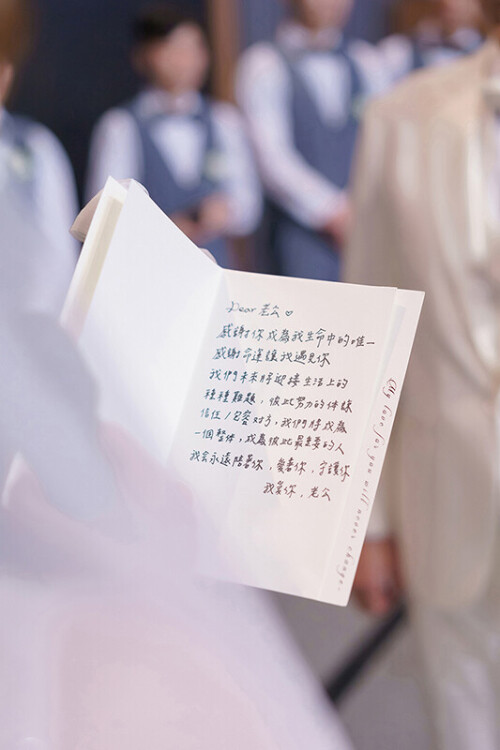 Dear 老公♡
感謝你成為我生命中的唯一
感謝命運讓我遇見你
我們未來將迎接生活上的
種種難題,彼此努力的体諒
信任/包容对方,我們將成為
一個整体,成為彼此最重要的人
我会永遠陪著你,愛著你,守護你
我愛你,老公
My love for you will never change.